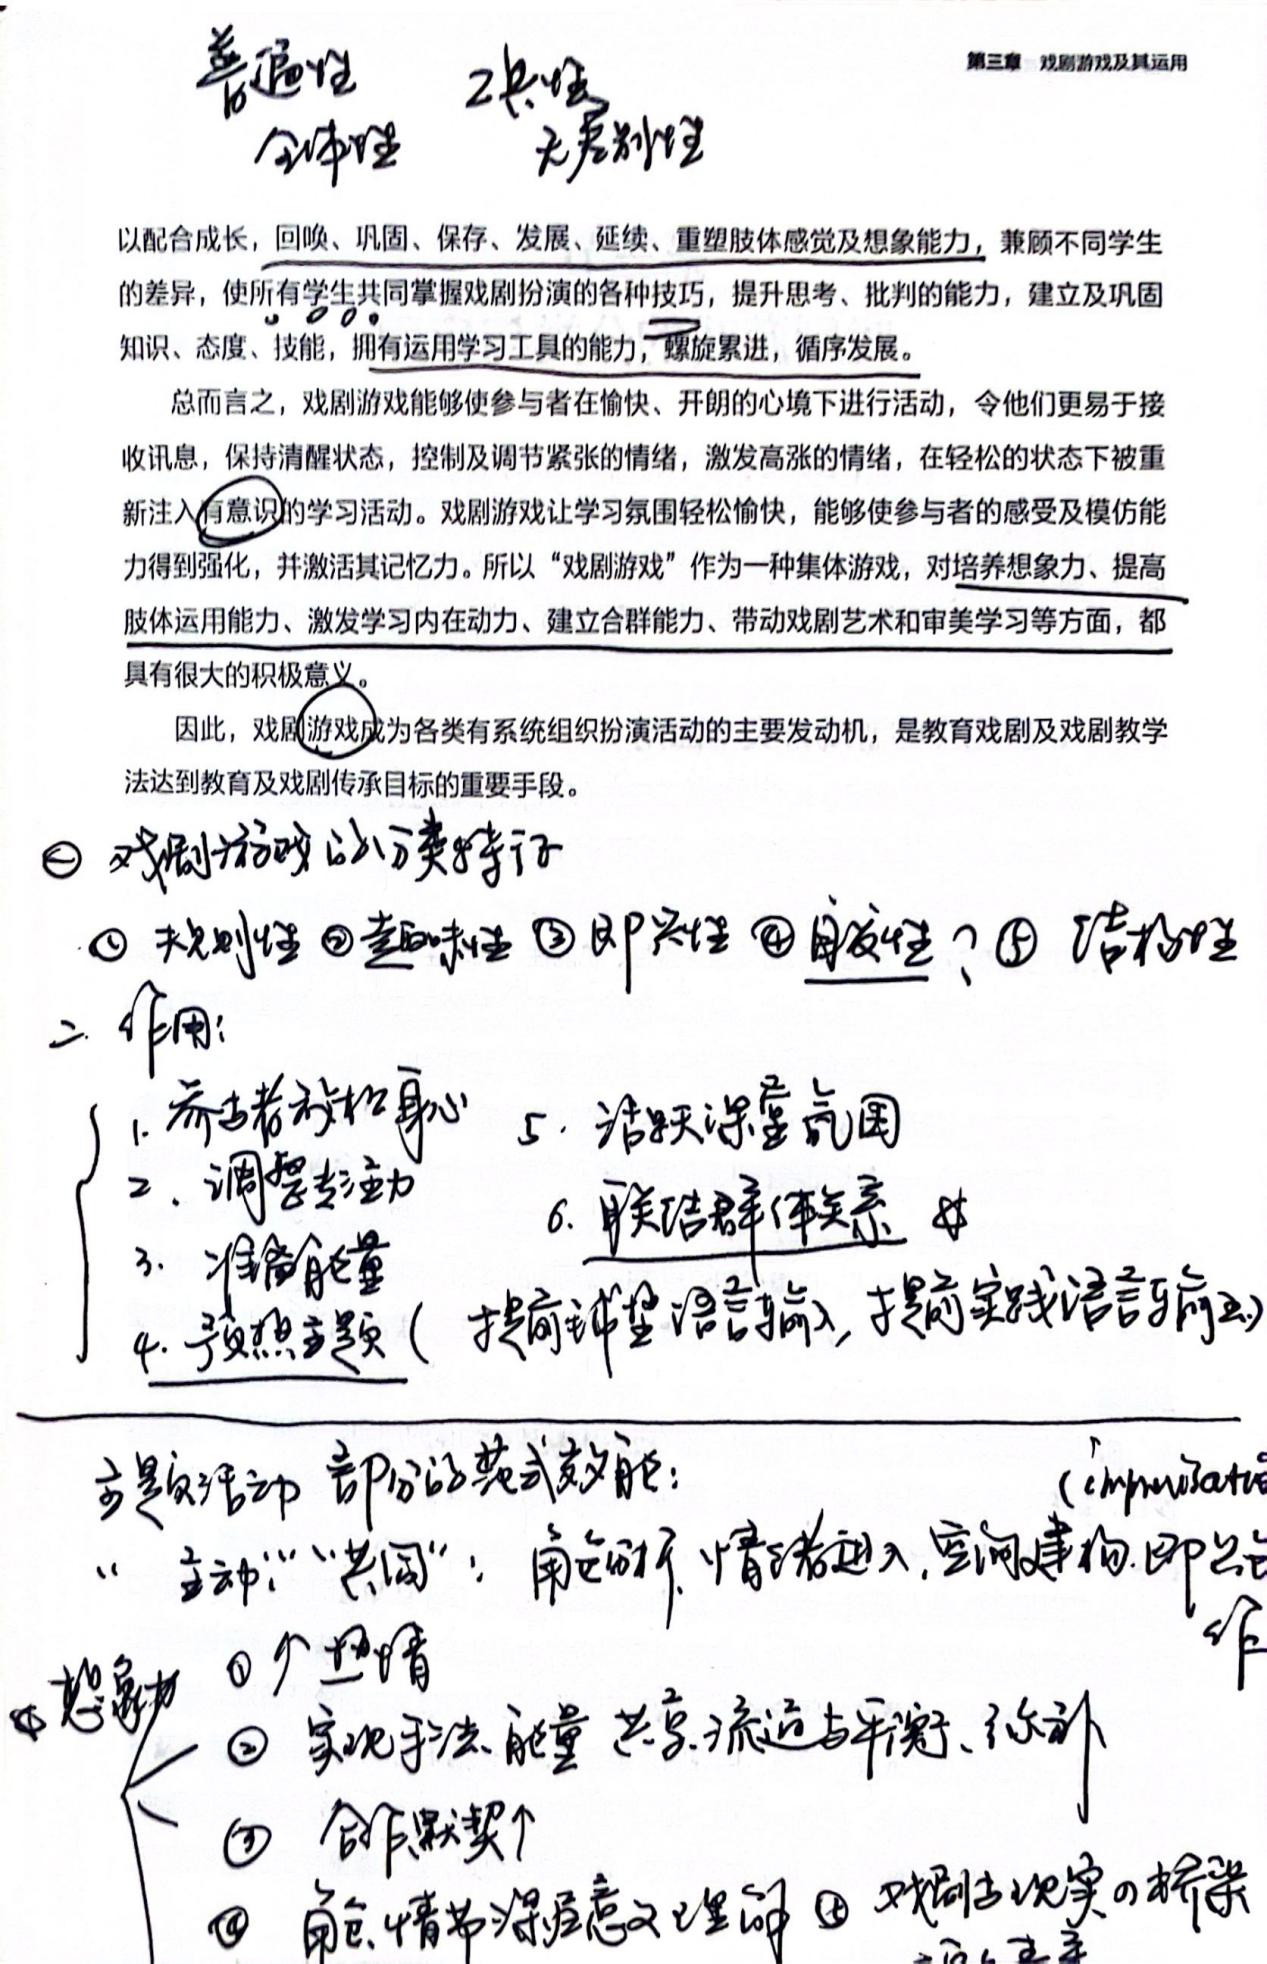 第三章 戏剧游戏及其运用
普遍性 工具性
全体性 无差别性
以配合成长，回唤、巩固、保存、发展、延续、重塑肢体感觉及想象能力，兼顾不同学生
的差异，使所有学生共同掌握戏剧扮演的各种技巧，提升思考、批判的能力，建立及巩固
知识、态度、技能，拥有运用学习工具的能力，螺旋累进，循序发展。
总而言之，戏剧游戏能够使参与者在愉快、开朗的心境下进行活动，令他们更易于接
收讯息，保持清醒状态，控制及调节紧张的情绪，激发高涨的情绪，在轻松的状态下被重
新注入有意识的学习活动。戏剧游戏让学习氛围轻松愉快，能够使参与者的感受及模仿能
力得到强化，并激活其记忆力。所以“戏剧游戏”作为一种集体游戏，对培养想象力、提高
肢体运用能力、激发学习内在动力、建立合群能力、带动戏剧艺术和审美学习等方面，都
具有很大的积极意义。
因此，戏剧游戏成为各类有系统组织扮演活动的主要发动机，是教育戏剧及戏剧教学
法达到教育及戏剧传承目标的重要手段。
㊀ 戏剧游戏的分类特征
① 规则性 ② 趣味性 ③ 即兴性 ④ 自发性？ ⑤ 结构性
二. 作用：
1. 参与者放松身心 5. 活跃课堂氛围
2. 调整专注力
6. 联结群体关系
3. 准备能量
4. 预热主题（提前铺垫语言输入，提前实践语言输出）
主题活动 部分的范式效能：
“主动”“共同”：角色分析、情绪进入、空间建构、即兴
作
① ↑ 热情
想象力
② 实现手法、能量 共享、流通与平衡、弥补
③ 合作、默契↑
④ 角色、情节深层意义理解 ⑤ 戏剧与现实の桥梁